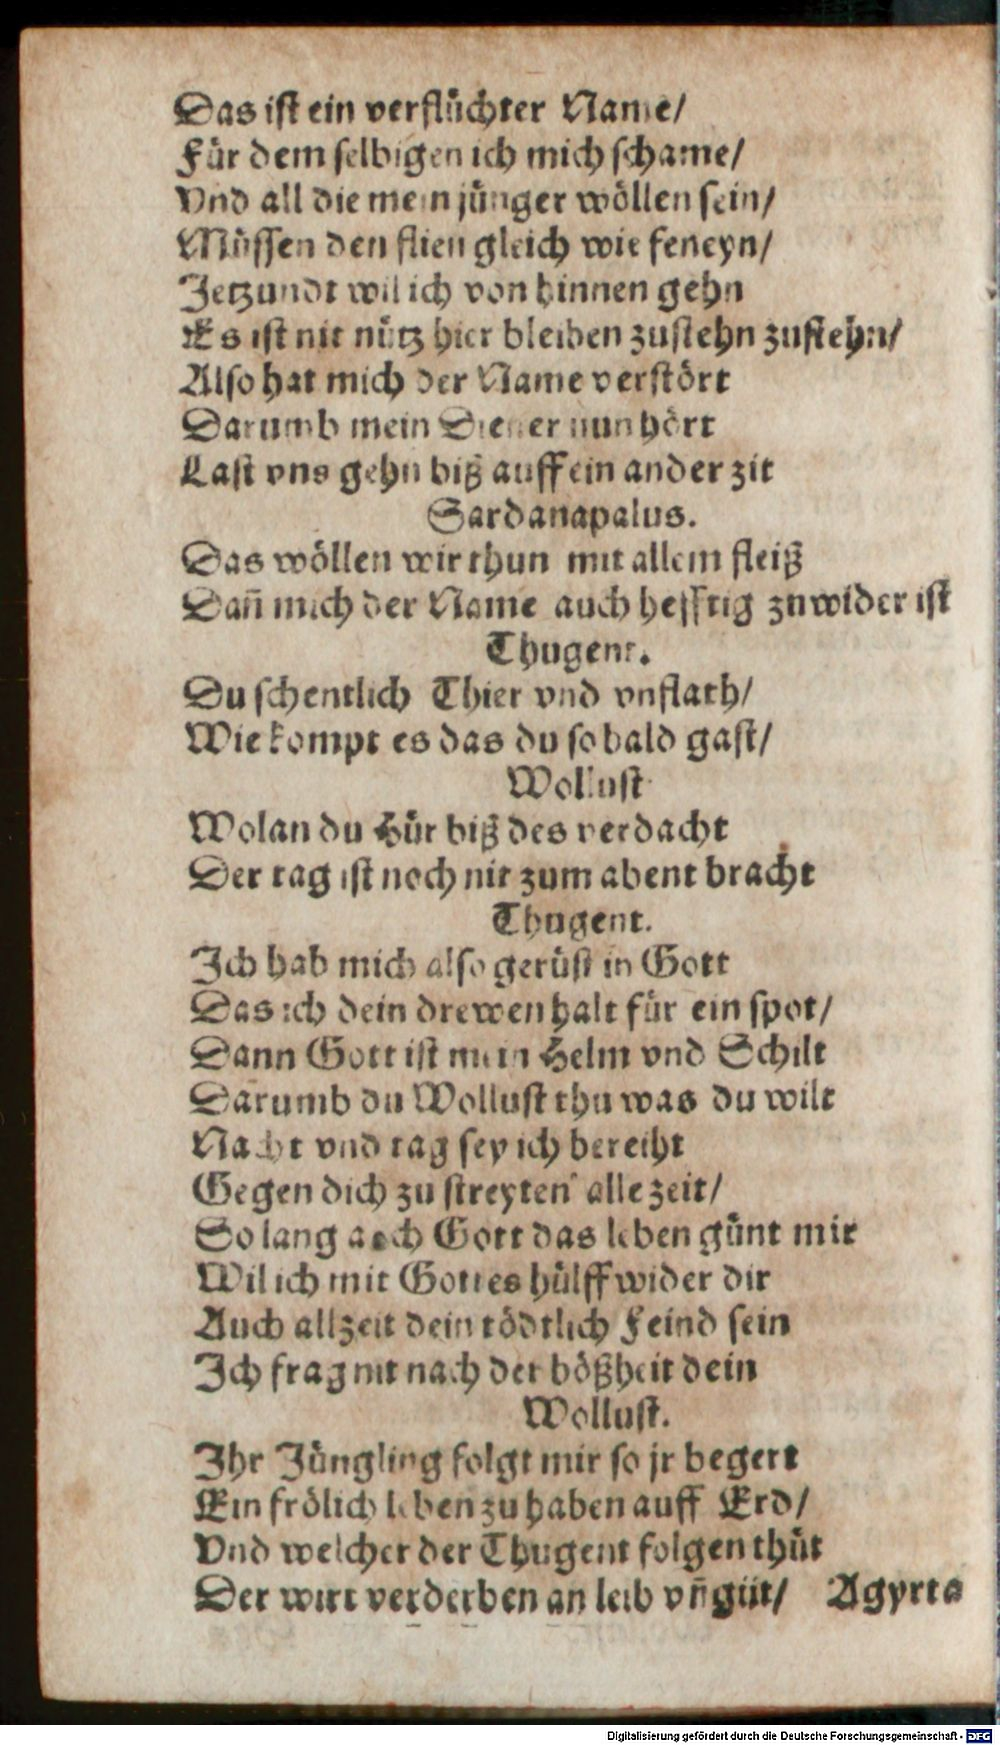 Das ist ein verflüchter Name/
Für dem selbigen ich mich schame/
Vnd all die mein jünger wöllen sein/
Müssen den flien gleich wie feneyn/
Jetzundt wil ich von hinnen gehn
Es ist nit nütz hier bleiben zustehn zustehn/
Also hat mich der Name verstört
Darumb mein Diener nun hört
Last vns gehn biß auff ein ander zit
Sardanapalus.
Das wöllen wir thun mit allem fleiß
Dañ mich der Name auch hefftig zuwider ist
Thugent.
Du schentlich Thier vnd vnflath/
Wie kompt es das du so bald gast/
Wollust
Wolan du Hür biß des verdacht
Der tag ist noch nit zum abent bracht
Thugent.
Ich hab mich also gerüst in Gott
Das ich dein drewen halt für ein spot/
Dann Gott ist mein Helm vnd Schilt
Darumb du Wollust thu was du wilt
Nacht vnd tag sey ich bereiht
Gegen dich zu streyten alle zeit/
So lang auch Gott das leben günt mir
Wil ich mit Gottes hülff wider dir
Auch allzeit dein tödtlich Feind sein
Ich frag nit nach der bößheit dein
Wollust.
Ihr Jüngling folgt mir so jr begert
Ein frölich leben zu haben auff Erd/
Vnd welcher der Thugent folgen thüt
Der wirt verderben an leib vñ güt/ Agyrta
Digitalisierung gefördert durch die Deutsche Forschungsgemeinschaft - DFG